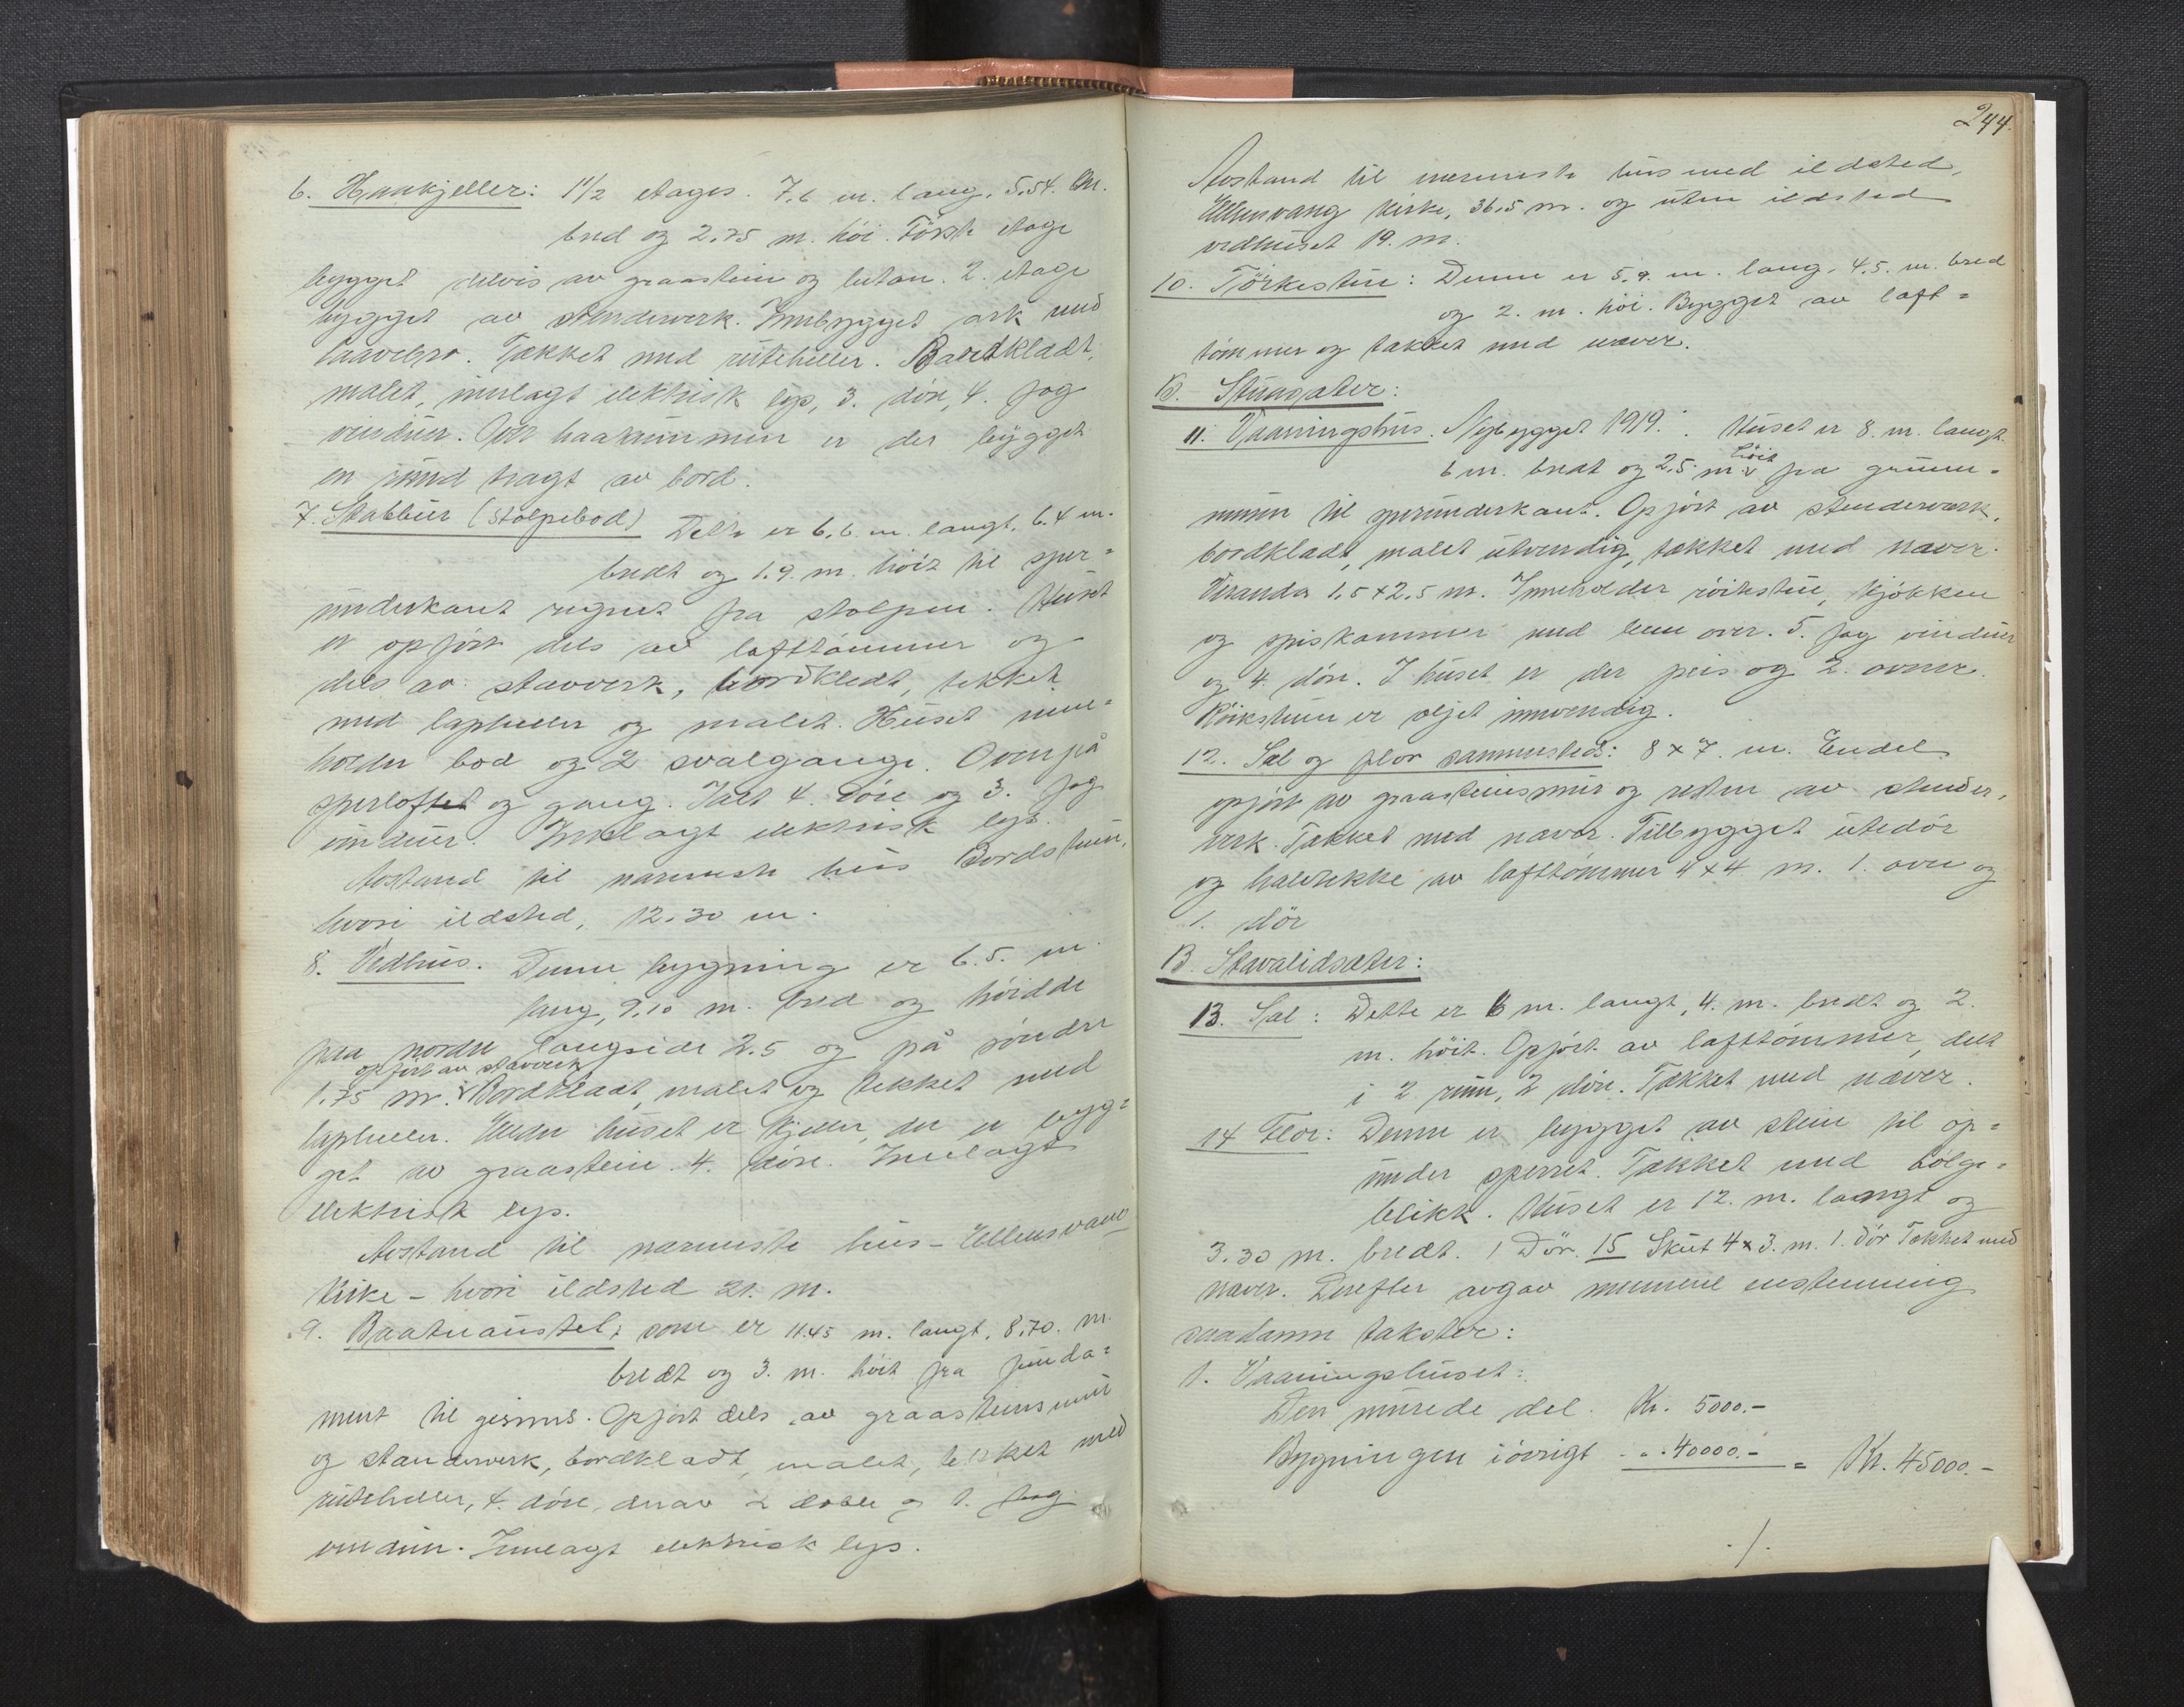 6. Haakjeller: 1 1/2 etages. 7,6 m. lang, 5,54. m.
bred og 2,75 m. höi. Förste etage
bygget delvis av graastein og betan. 2. etage
bygget av stenderverk. Innbygget ark med
laavebro. Tækket med ruteheller. Bordklædt,
malet, innlagt elektrisk lys, 3. döre, 4. fag
vinduer. Over haakummen er der bygget
en rund tragt av bord.
7. Stabbur (stolpebod) Dette er 6,6 m. langt, 6.4 m.
bredt og 1.9. m. höit til sper=
underkant regnet fra stolpen. Huset
er opfört dels av lafttömmer og
dels av stavverk, bordkledt, tekket
med lapheller og malet. Huset inne=
holder bod og 2 svalgange. Ovenpå
sperloftet og gang. Ialt 4. döre og 3. fag
vinduer. Innlagt elektrisk lys.
Avstand til nærmeste hus Bordstuen,
hvori ildsted, 12.30 m.
8. Vedhus. Denne bygning er 6.5. m.
lang, 9,10 m. bred og höidde
paa nordre langside 2.5 og på söndre
opfört av stavverk
1.75 m. v Bordklædt, malet og tekket med
lapheller. Under huset er kjeller, der er byg=
get av graastein. 4. döre. Innlagt
elektrisk lys.
Avstand til nærmeste hus - Ellensvang
kirke - hvori ildsted 21. m.
9. Baatnaustet; som er 11.45 m. langt, 8,70. m.
bredt og 3. m. höit fra funda=
ment til gesims. Opfört dels av graasteinsmur
og standerverk, bordklædt, malet, tekket med
rutcheller, 4. döre, derav 2 doble og 1. fag
vinduer. Innlagt elektrisk lys.
244.
Avstand til nærmeste hus med ildsted,
Ellensvang kirke, 36,5 m. og uten ildsted
vedhuset 19. m.
10. Törkestue: Denne er 5,9. m. lang, 4.5. m. bred
og 2. m. höi. Bygget av laft=
tömmer og tækket med næver.
B. Stuasæter:
11. Vaaningshus. Nybygget 1919. Huset er 8. m. langt.
höit
6 m. bredt og 2,5. m. v fra grunn=
muren til sperunderkant. Opfört av stenderværk,
bordklædt, malet utvendig, tækket med næver.
Veranda 1,5 x 2,5 m. Inneholder röikstue, kjökken
og spiskammer med lem over. 5. fag vinduer
og 4. döre. I huset er der peis og 2. ovner.
Röikstuen er oljet innvendig.
12. Sel og flor sammesteds: 8 x 7. m. Endel
opfört av graasteinsmur og resten av stender,
verk. Tækket med næver. Tilbygget utedör
og halvtekke av lafttömmer 4 x 4 m. 1. ovn og
1. dör
B. Stavalidsæter:
13. Sel: Dette er 6 m. langt, 4. m. bredt og 2.
m. höit. Opfört av lafttömmer, delt
i 2 rum, 2 döre. Tækket med næver.
14 Flor: Denne er bygget av stein til op=
under sperret. Tækket med bölge=
blikk. Huset er 12. m. langt og
3.30 m. bredt. 1 Dör. 15 Skut 4 x 3. m. 1. dör Tekket med
næver. Derefter avgav mennene enstemmig
saadanne takster:
1. Vaaningshuset:
Den murede del. Kr. 5000.-
Bygningen iövrigt - " - 40000.- = Kr. 45000.-
./.